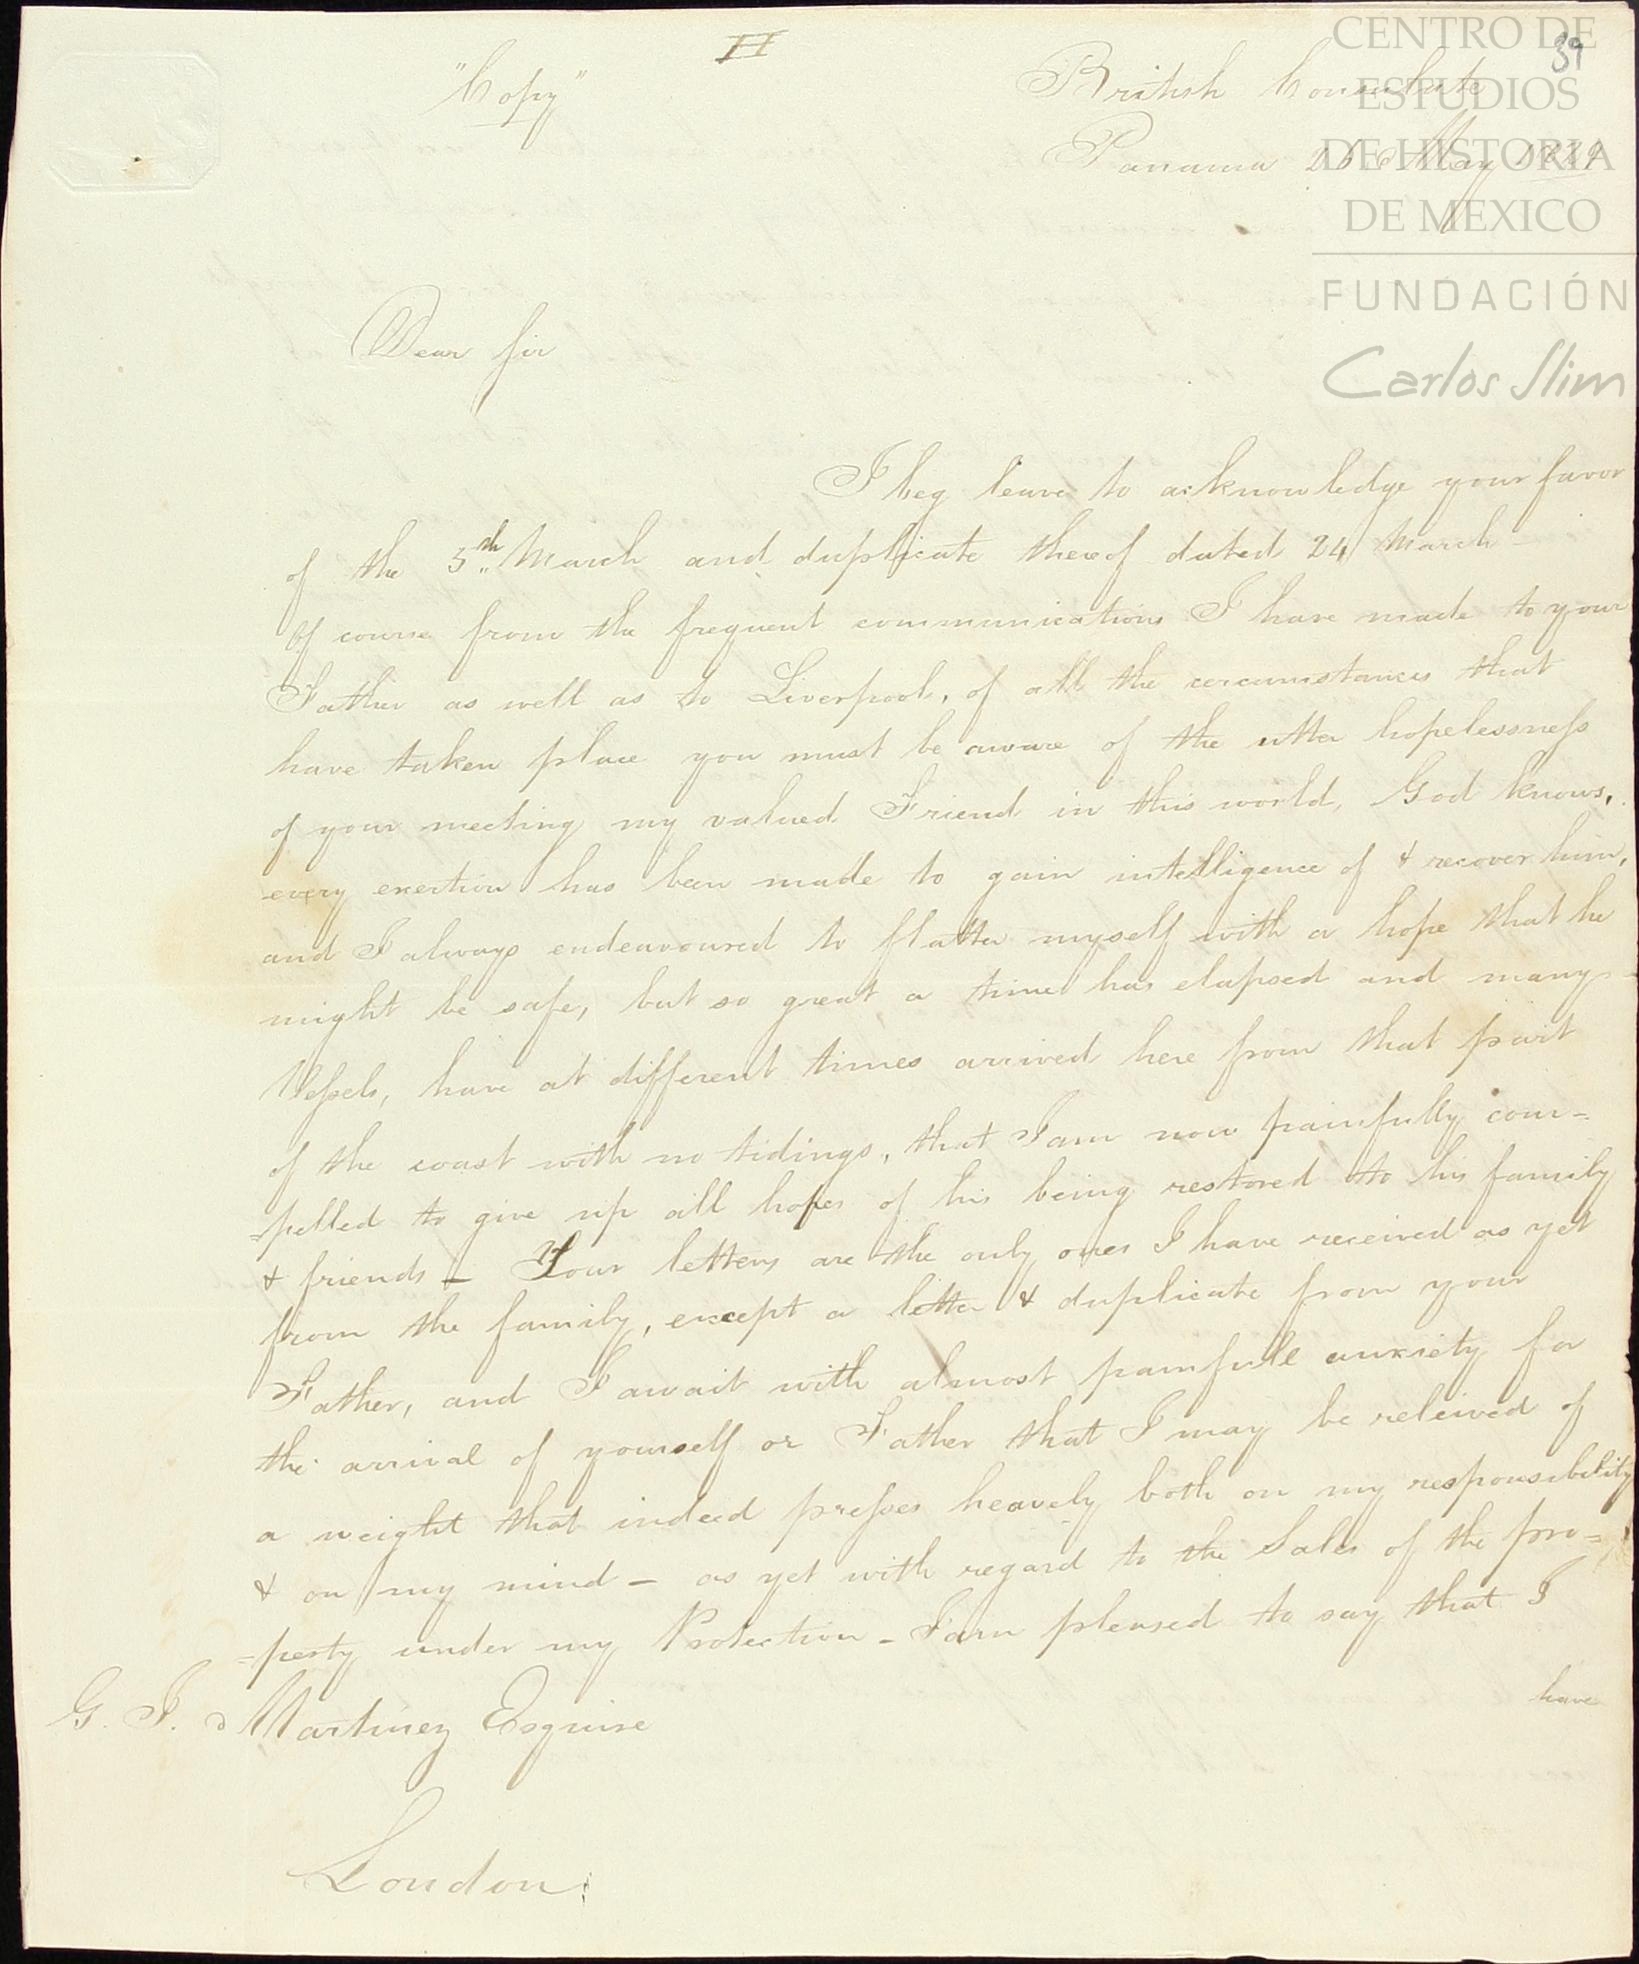 II
39
"Copy"
British Consulate
Panama 26 May
CENTRO DE
ESTUDIOS
DE HISTORIA
DE MEXICO
FUNDACIÓN
Carlos Slim
Dear Sir
I beg leave to acknowledge your favor
of the 5th March and duplicate thereof dated 24 March
Of course from the frequent communications I have made to your
Father as well as to Liverpool, of all the circumstances that
have taken place you must be aware of the utter hopelessness
of your meeting my valued Friend in this world, God knows,
every exertion has been made to gain intelligence of & recover him,
and I always endeavoured to flatter myself with a hope that he
might be safe, but so great a time has elapsed and many
Vessels, have at different times arrived here from that part
of the coast with no tidings, that I am now painfully com=
=pelled to give up all hopes of his being restored to his family
& friends – Your letters are the only ones I have received as yet
from the family, except a letter & duplicate from your
Father, and I await with almost painfull anxiety for
the arrival of yourself or Father that I may be releived of
a weight that indeed presses heavely both on my responsibility
& on my mind – as yet with regard to the Sales of the pro=
=perty under my Protection – I am pleased to say that I
have
G. J. Martinez Esquire
London